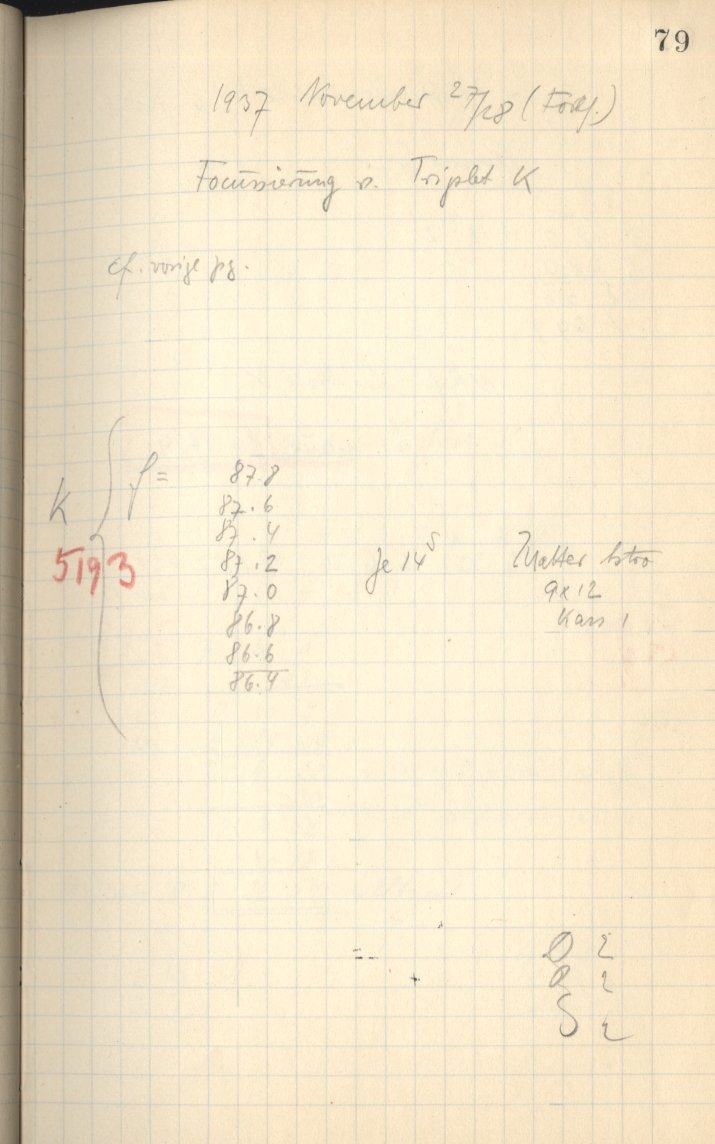 79
1937 November 27/28 (Forts.)
Focussierung v. Triplet K
cf. vorige pg.
K
5193
f =
87.8
87.6
87.4
87.2
87.0
86.8
86.6
86.4
Je 14s
Matter
9x12
Kass 1